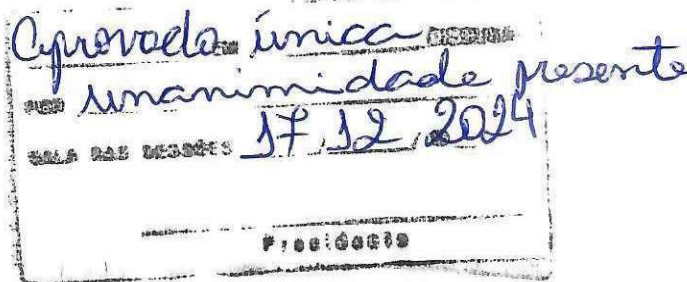 Aprovada em única discussão
por unanimidade presente
SALA DAS SESSÕES 17, 12, 2024
Presidente